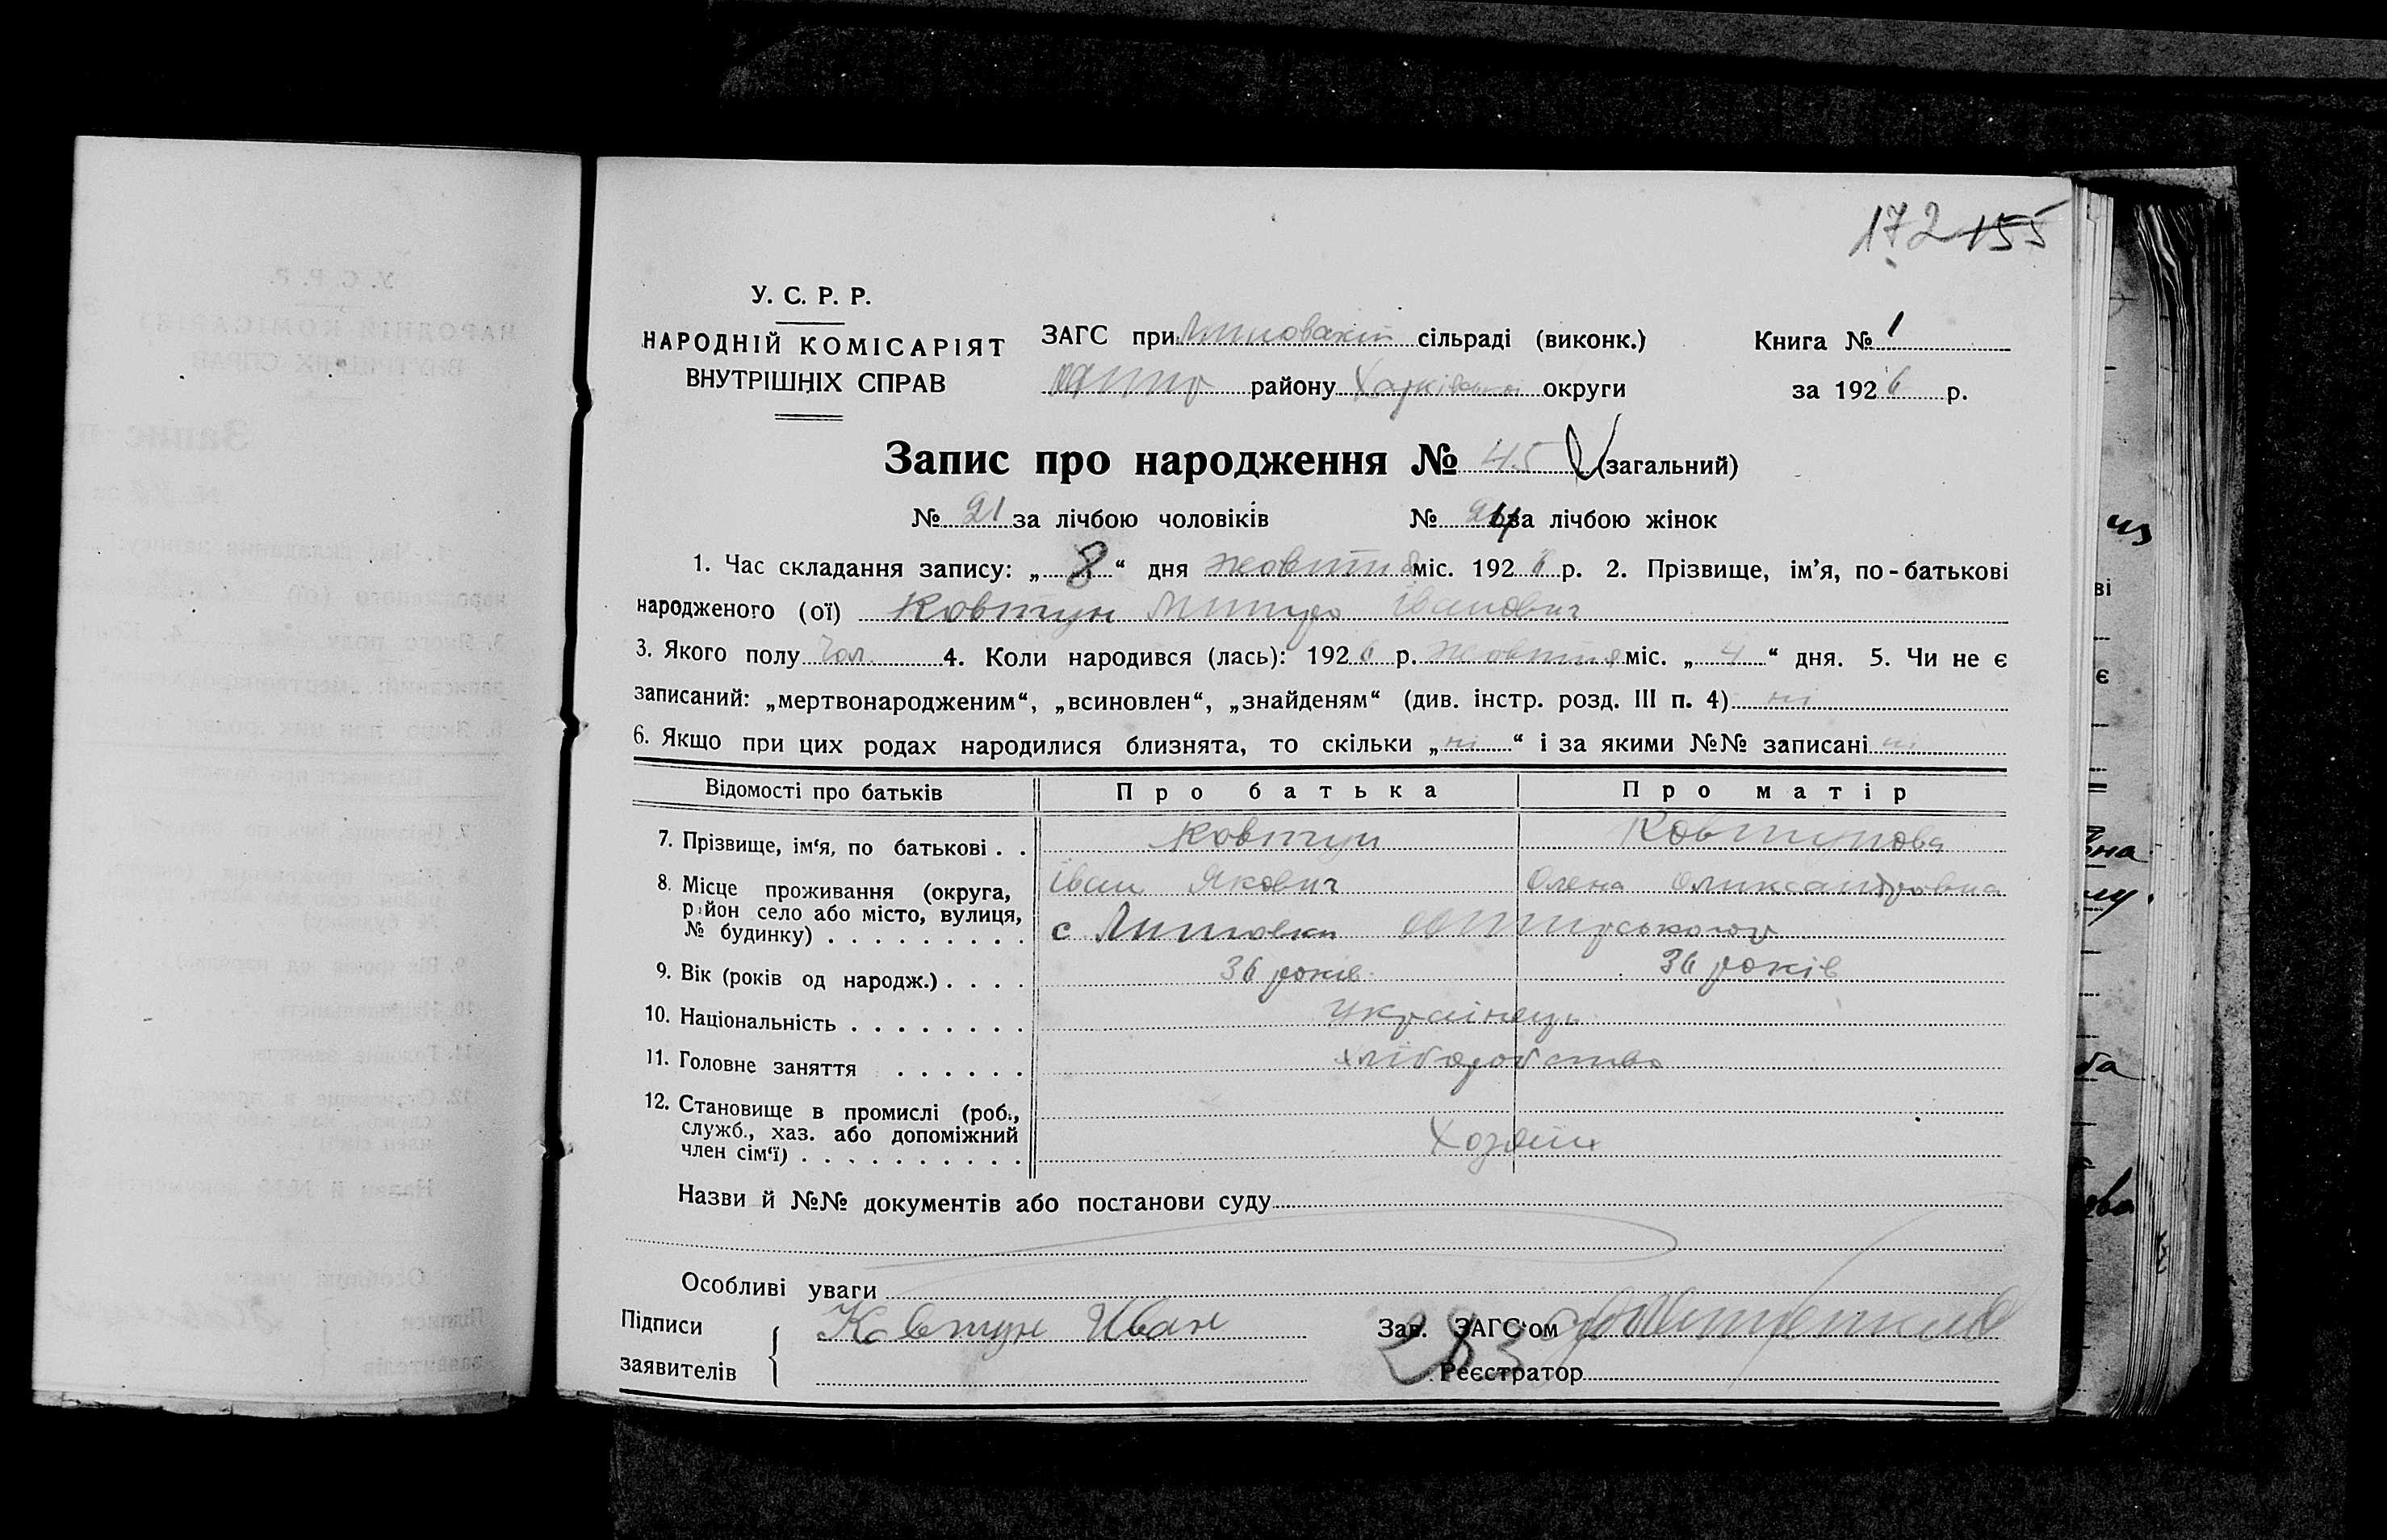 172 155
У. С. Р. Р.
НАРОДНІЙ КОМІСАРІЯТ
ВНУТРІШНІХ СПРАВ
ЗАГС при сільраді (виконк.)
району Харківської округи
Книга № 1
за 1926 р.
Запис про народження № 45 (загальний)
№ 21 за лічбою чоловіків № 24 за лічбою жінок
1. Час складання запису: „8“ дня жовтня міс. 1926 р. 2. Прізвище, ім'я, по-батькові
народженого (ої) Ковтун Митро Іванович
3. Якого полу Чол. 4. Коли народився (лась): 1926 р. жовтня міс. „4“ дня. 5. Чи не є
записаний: „мертвонародженим“, „всиновлен“, „знайденям“ (див. інстр. розд. III п. 4) ні
6. Якщо при цих родах народилися близнята, то скільки „ні“ і за якими №№ записані ні
Відомості про батьків Про батька Про матір
7. Прізвище, ім'я, по батькові . . Ковтун Ковтунова
Іван Якович Олена Олександровна
8. Місце проживання (округа,
район село або місто, вулиця,
№ будинку) . . . . . . . . . с
9. Вік (років од народж.) . . . . 36 років 36 років
10. Національність . . . . . . . . Українець
11. Головне заняття . . . . . . хліборобство
12. Становище в промислі (роб.,
служб., хаз. або допоміжний
член сім'ї) . . . . . . . . . . Хозяїн
Назви й №№ документів або постанови суду
Особливі уваги
Підписи
заявителів
Ковтун Иван
Зав. ЗАГС'ом
283
Реєстратор